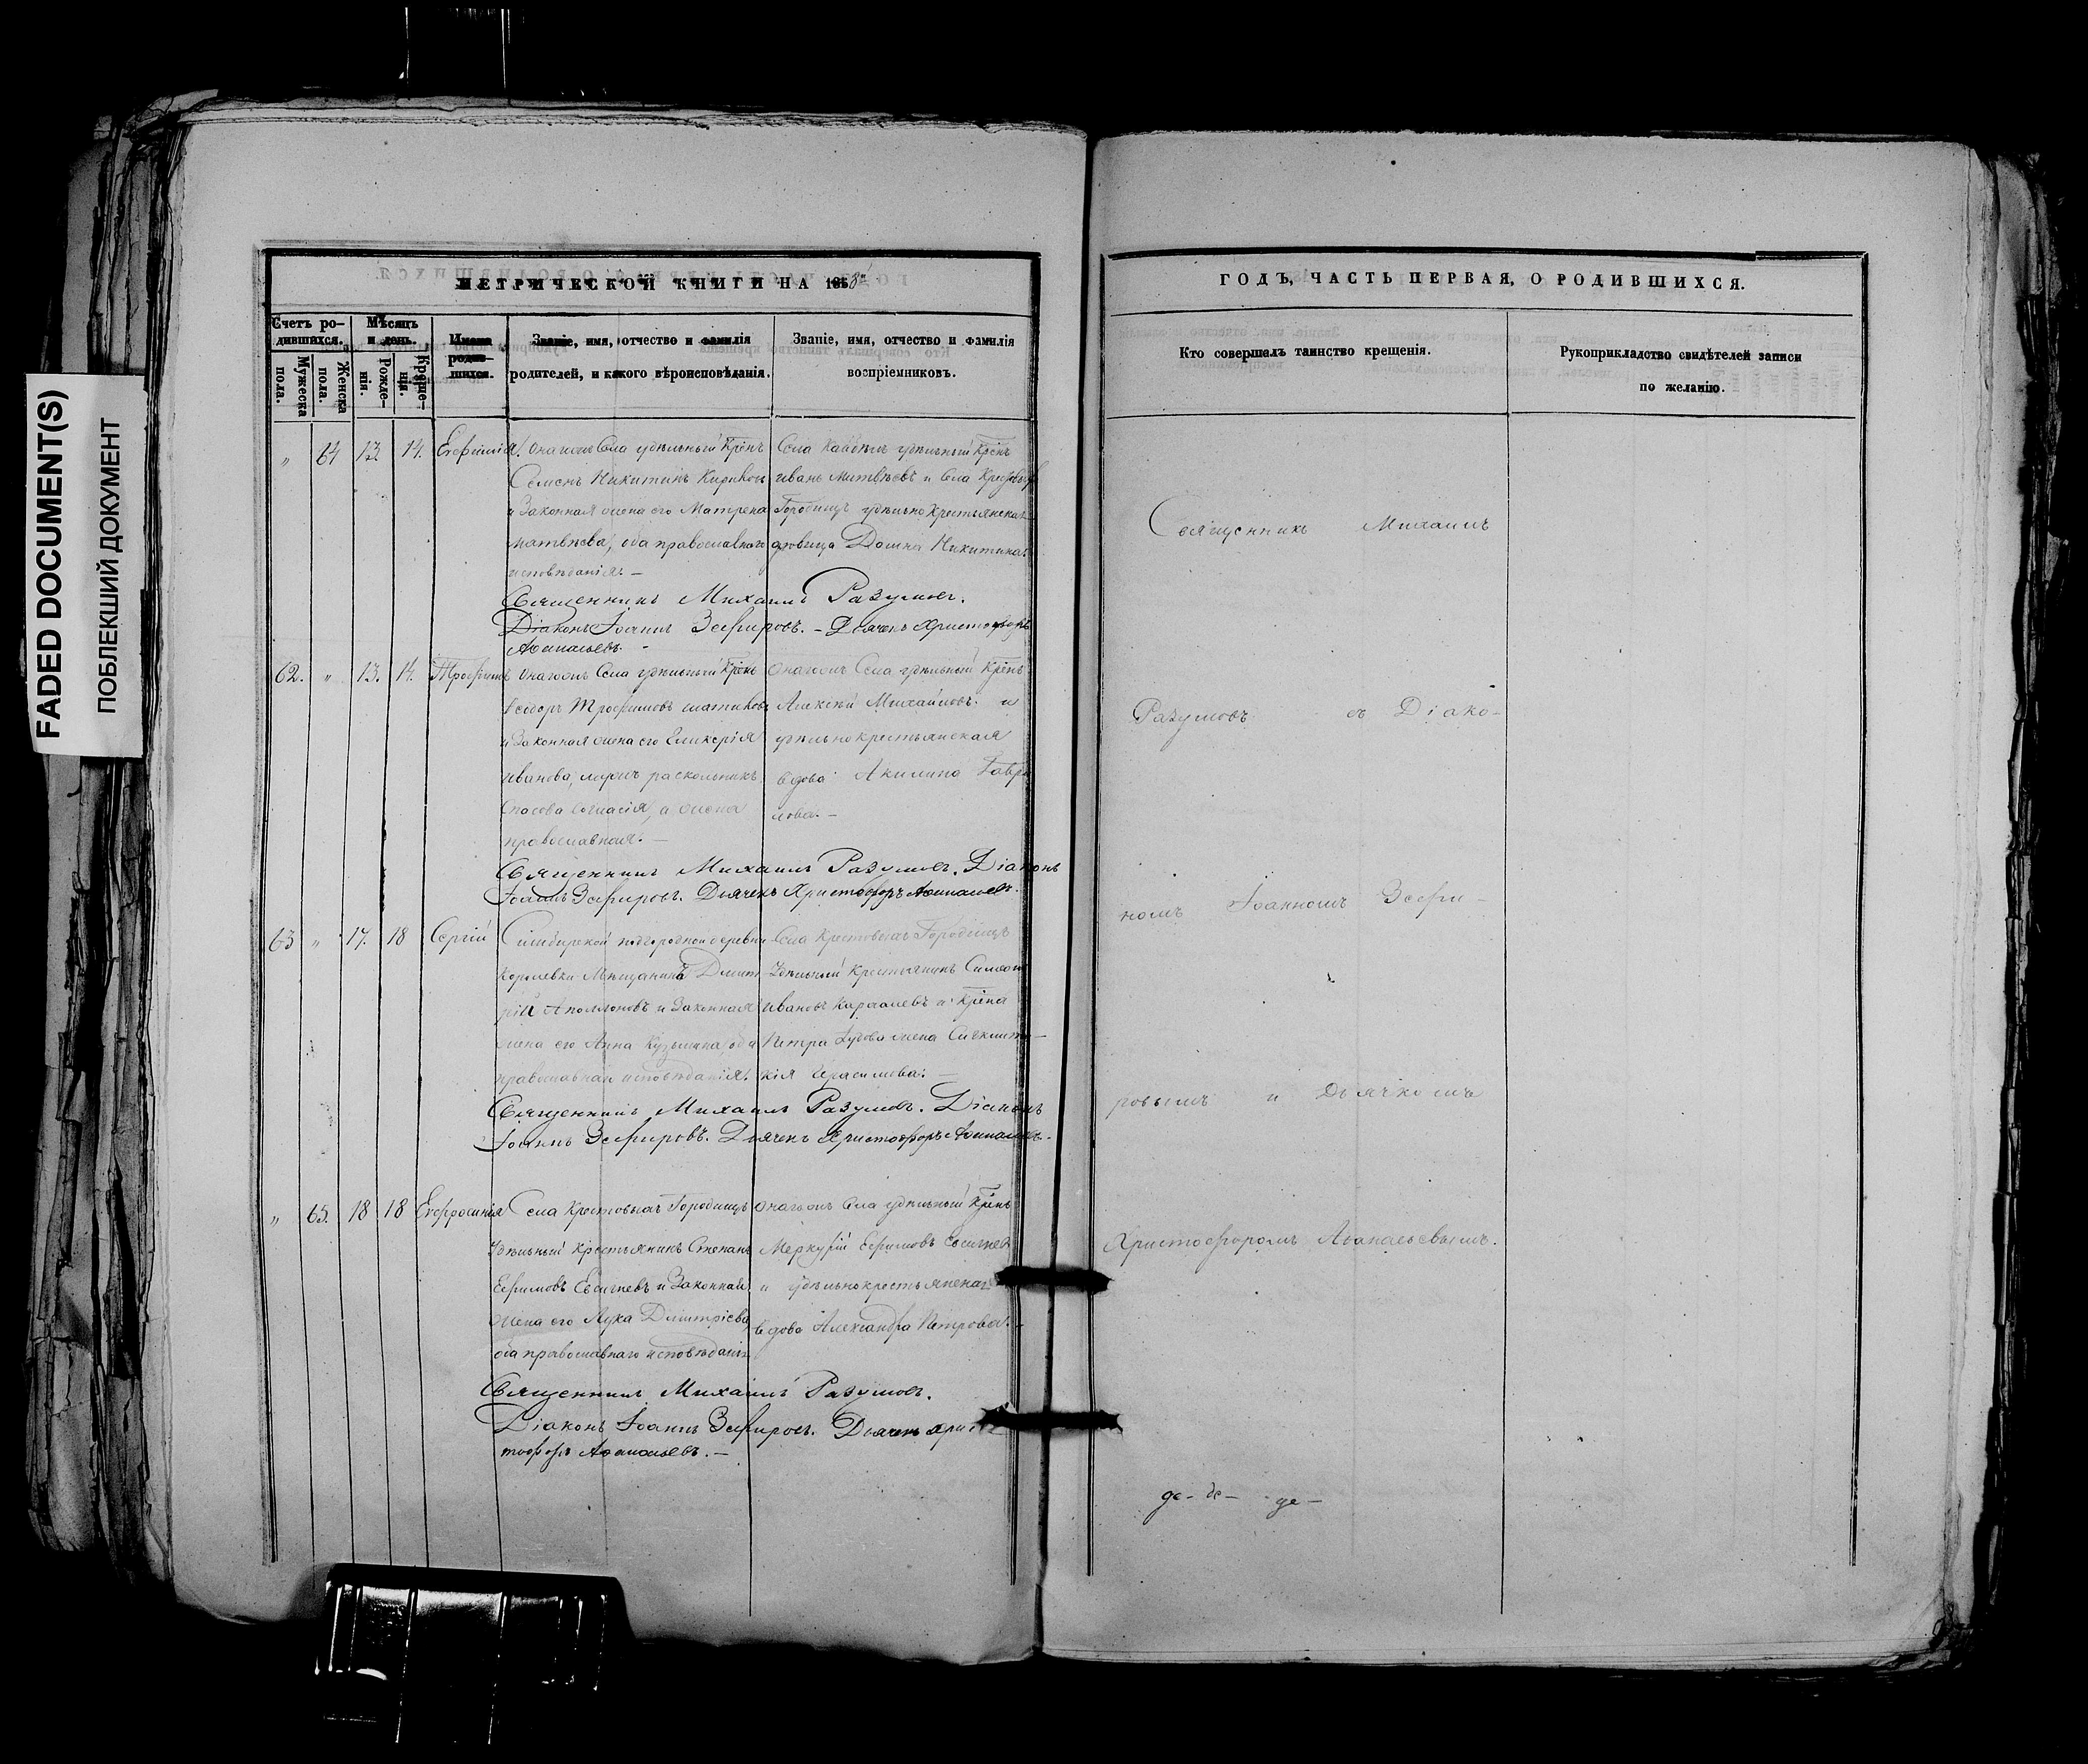 FADED DOCUMENT(S)
ПОБЛЕКШИЙ ДОКУМЕНТ
МЕТРИЧЕСКОЙ КНИГИ НА 1858й
Счетъ ро-
дившихся.
Мужеска пола.
Женска пола.
Мѣсяцъ и день.
Рожде-
нія.
Креще-
нія.
Имена
родив-
шихся.
Званіе, имя, отчество и фамилія
родителей, и какого вѣроисповѣданія.
Званіе, имя, отчество и фамилія
воспріемниковъ.
„ 64 13 14. Евфимія
Онагожъ Села удѣльный Крѣнъ
Семенъ Никитинъ
и Законная жена его Матрена
Матвѣева, оба православнаго
исповѣданія. —
Села удѣльный Крѣнъ
Иванъ Матвѣевъ и Села
Городищъ удѣльно крестьянская
Домна Никитина.
Священникъ Михаилъ Разумовъ.
Діаконъ Іоаннъ Зефировъ. – Дьячекъ Христофоръ
Аѳанасьевъ. -
62. „ 13. 14. Трофимъ
Онагожъ Села удѣльный Крѣнъ
Ѳеодоръ Трофимовъ
и Законная жена его Гликерія
Иванова, мужъ раскольникъ
Спасова Согласія, а жена
православная. —
Онагожъ Села удѣльный Крѣнъ
Алексѣй Михайловъ. и
удѣльно крестьянская
вдова Акилина Гаври
лова. —
Священникъ Михаилъ Разумовъ. Діаконъ
Іоаннъ Зефировъ. Дьячекъ Христофоръ Аѳанасьевъ.
63 „ 17. 18 Сергій
Симбирской подгородной деревни
Королевки Мѣщанинъ Дмит
рій Аполлоновъ и Законная
жена его Анна Кузьмина, оба
православнаго исповѣданія.
Села Крестовыхъ Городищъ
Удѣльный Крестьянинъ Симеонъ
Ивановъ и Крѣна
Петра жена
Герасимова. —
Священникъ Михаилъ Разумовъ. Діаконъ
Іоаннъ Зефировъ. Дьячекъ Христофоръ Аѳанасьевъ.
„ 65. 18 18 Евфросинія
Села Крестовыхъ Городищъ
Удѣльный Крестьянинъ Степанъ
Ефимовъ Евсигнеевъ и Законная
Жена его Лука Дмитріева,
оба православнаго исповѣданія
Онагожъ Села удѣльный Крѣнъ
Меркурій Ефимовъ
и удѣльно крестьянская
вдова Александра Петрова. —
Священникъ Михаилъ Разумовъ.
Діаконъ Іоаннъ Зефировъ. Дьячекъ Хрис
тофоръ Аѳанасьевъ. —
ГОДЪ, ЧАСТЬ ПЕРВАЯ, О РОДИВШИХСЯ.
Кто совершалъ таинство крещенія.
Рукоприкладство свидѣтелей записи
по желанію.
Священникъ Михаилъ
Разумовъ съ Діако-
номъ Іоанномъ Зефи-
ровымъ и Дьячкомъ
Христофоромъ Аѳанасьевымъ.